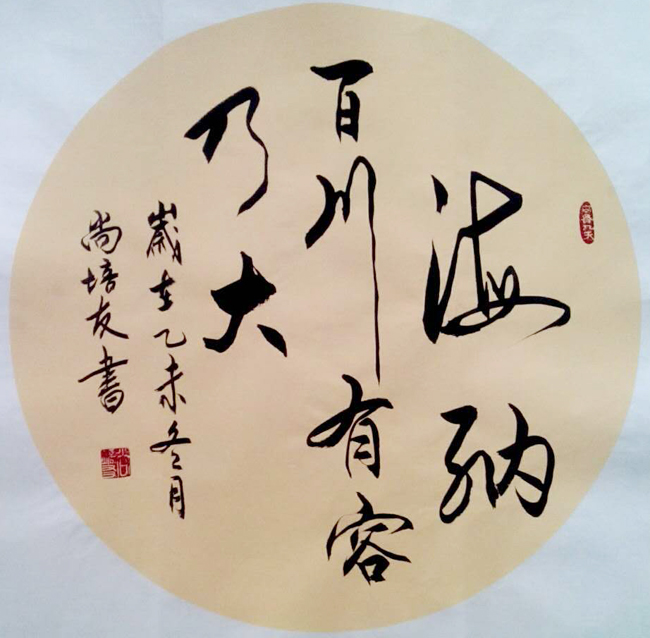 海纳
百川有容
乃大
岁在乙未冬月
尚培友書